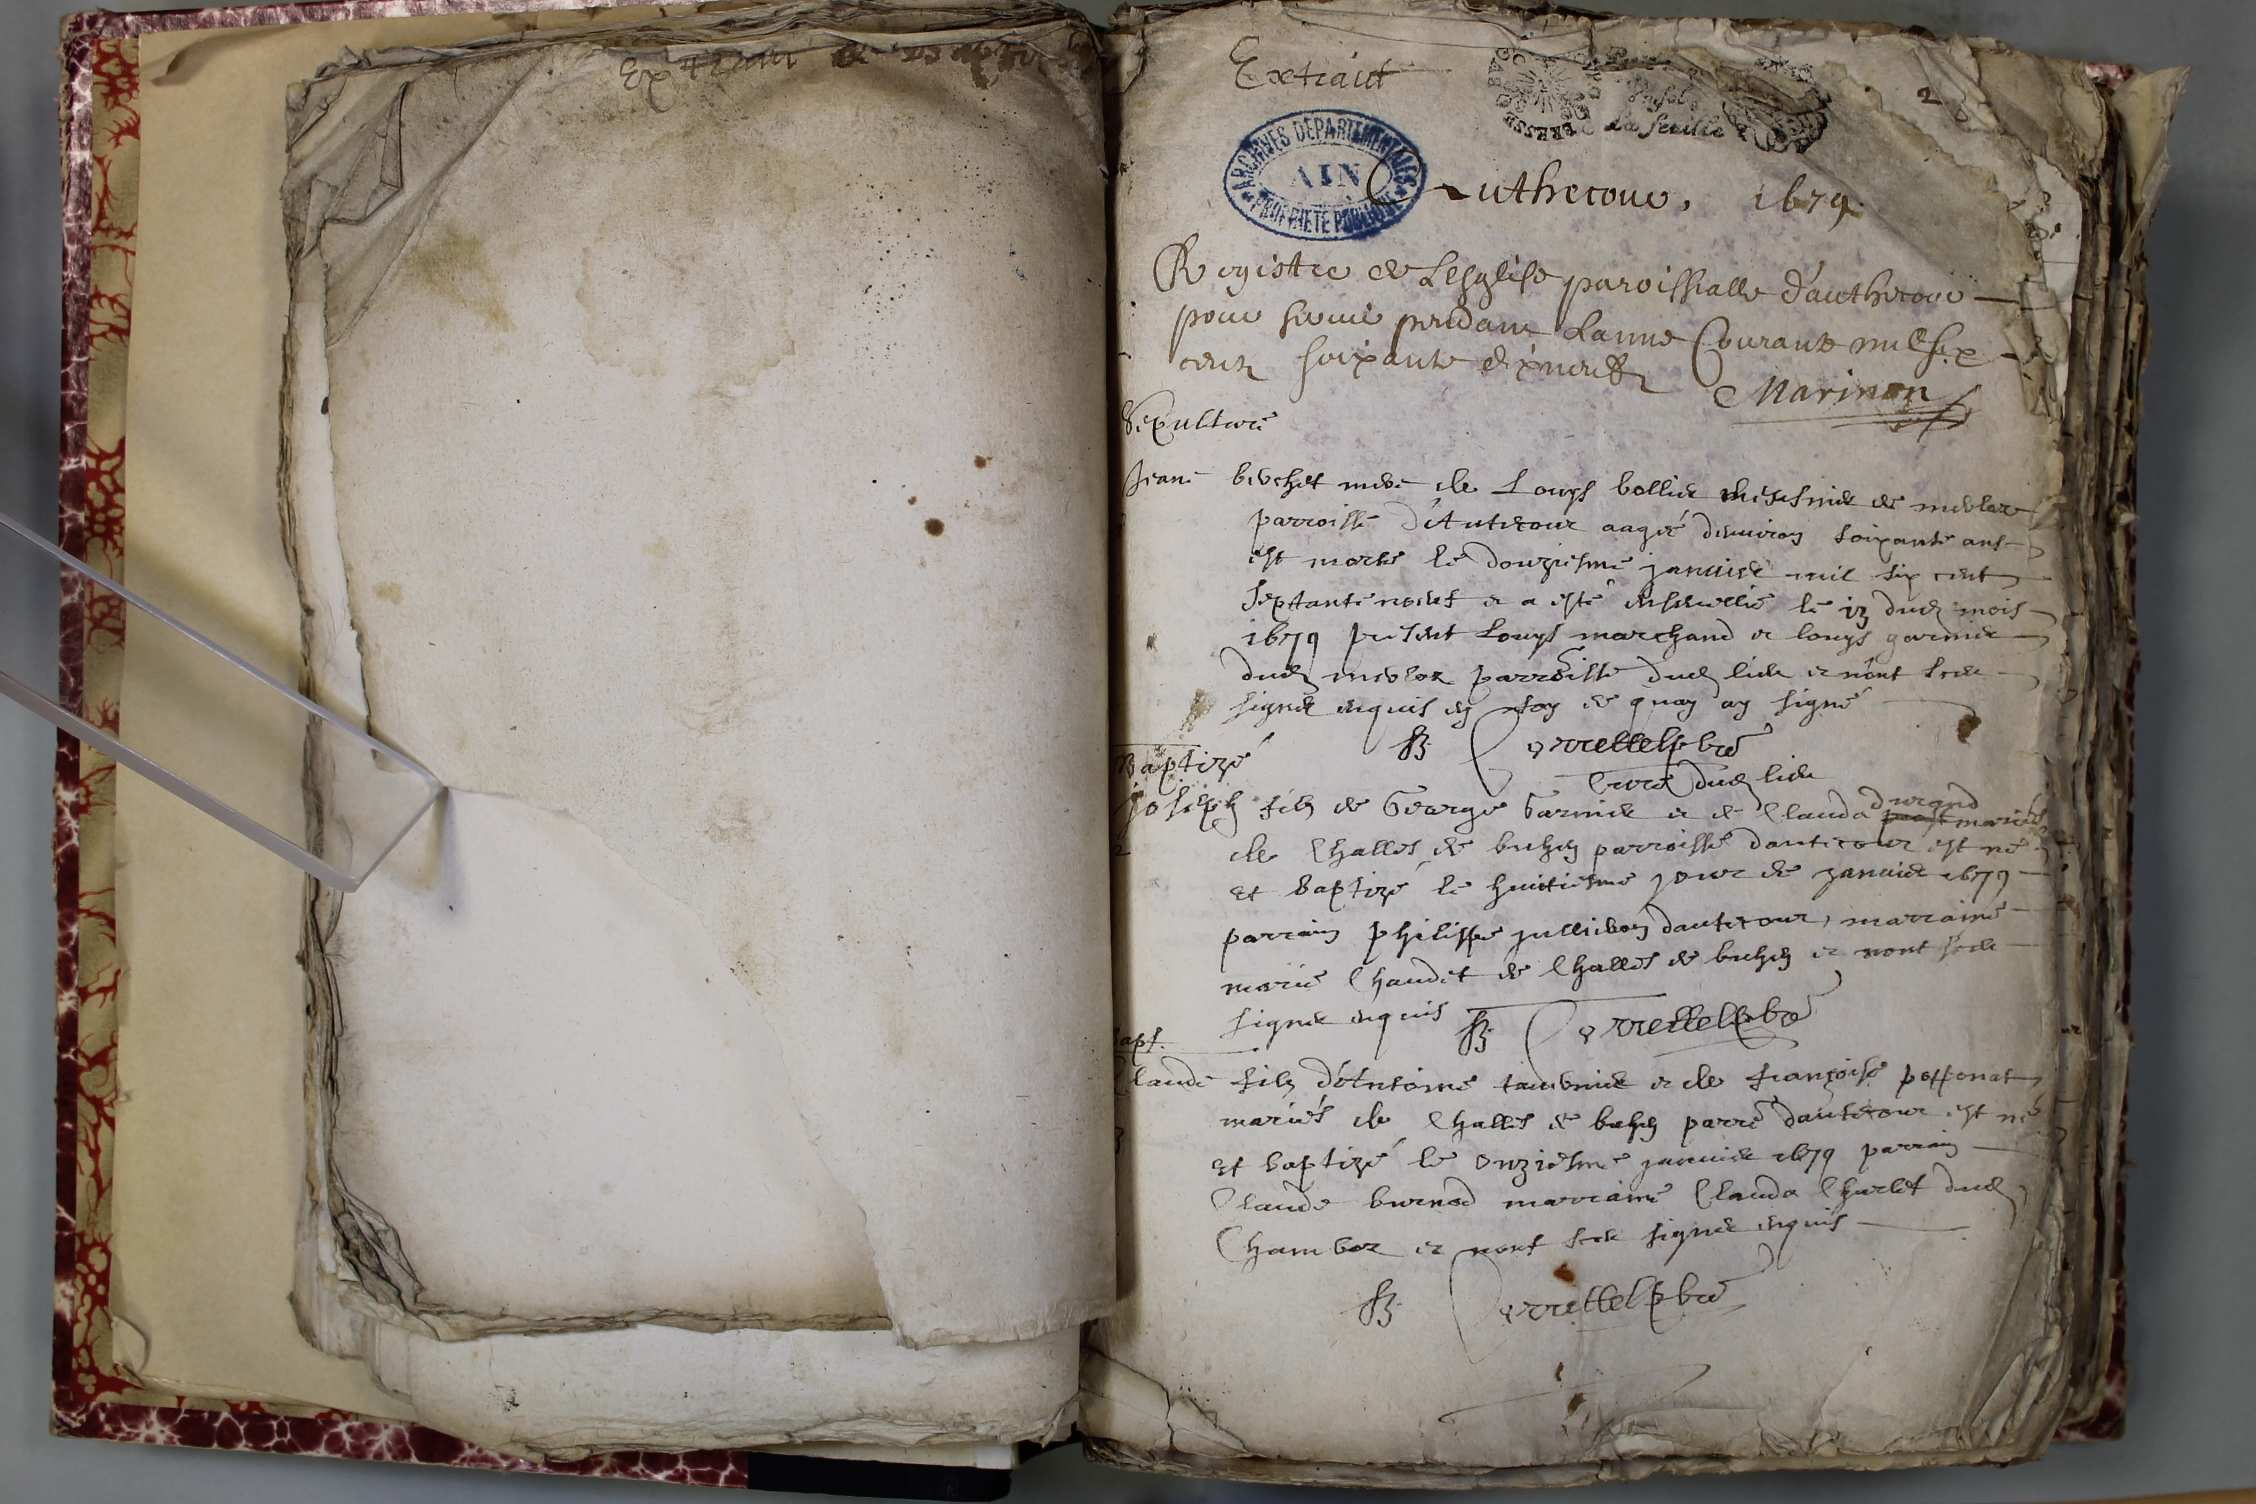 Extrait
Extraict
2
la feuille
ARCHIVES DÉPARTEMENTALES
AIN
PROPRIÉTÉ PUBLIQUE
Authecour, 1679
Registre de Lesglise paroissialle d'authecour
pour servir pendant Lanne Courante mil six
cent soixante dixneuf
Marinon
Sepulture
Jeane bevchet de Louys bollie de
parroisse d'Autecour aagée denviron soixante ans
est morte le douziesme janvier mil six cent
septante neuf et a esté ensevellie le 13 dud mois
1679 présent Louys marchand et louys garnier
dud parroisse dud lieu et n'ont sceu
signer enquis en foy de quoy ay signé
curé dud lieu
Baptizé
joseph filz de George Garnier et de Clauda durand mariés
de Challes de bichen parroisse dautecour est né
2
et baptizé le huitiesme jour de janvier 1679
parrain philippe jullieron dautecour, marraine
marie Chaudet de Challes de bichen et nont sceu
signer enquis
bapt.
Claude filz d'Antoine et de françoise
mariés de Challes de parre dautecour est né
3
et baptizé le onziesme janvier 1679 parrain
Claude burnod marraine Clauda Charlet dud
et nont sceu signer enquis